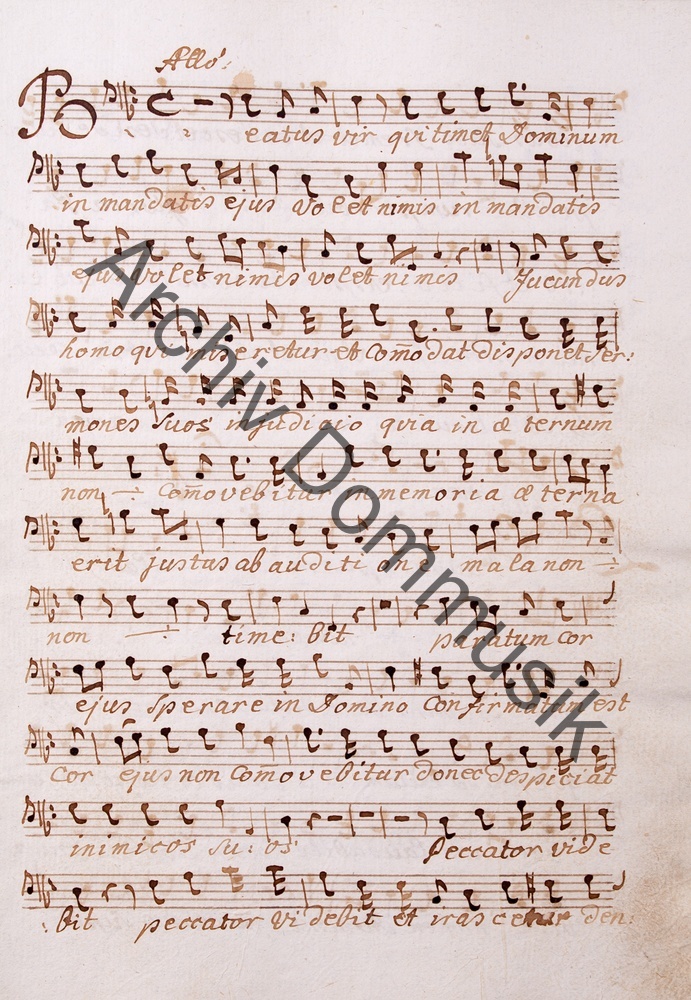 Allo:
Beatus vir qui timet Dominum
in mandatis ejus volet nimis in mandatis
ejus volet nimis volet nimis Jucundus
homo qui miseretur et Com̄odat disponet Ser:
mones suos in judicio quia in æternum
non Com̄ovebitur in memoria æterna
erit justus ab auditione mala non
non time: bit paratum cor
ejus sperare in Domino Confirmatum est
Cor ejus non Com̄ovebitur donec despiciat
inimicos su: os Peccator vide
: bit peccator videbit et irascetur den:
Archiv Dommusik